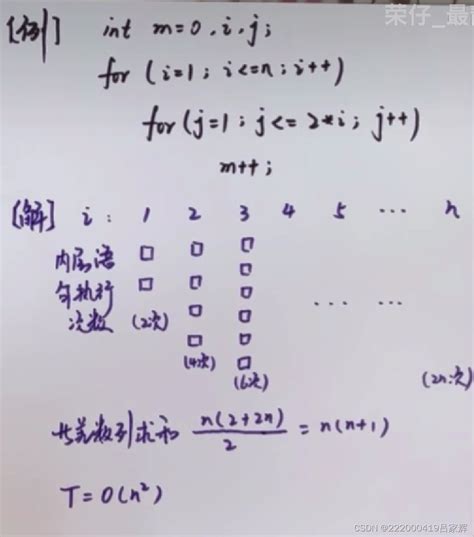 荣仔_最
[例] int m=0,i,j;
for (i=1; i<=n; i++)
for (j=1; j<= 2*i; j++)
m++;
[解] i: 1 2 3 4 5 ... n
内层语
句执行 ... ...
次数 (2次)
(4次)
(6次) (2n次)
等差数列求和 n(2+2n)/2 = n(n+1)
T=O(n²)
CSDN @222000419吕家辉